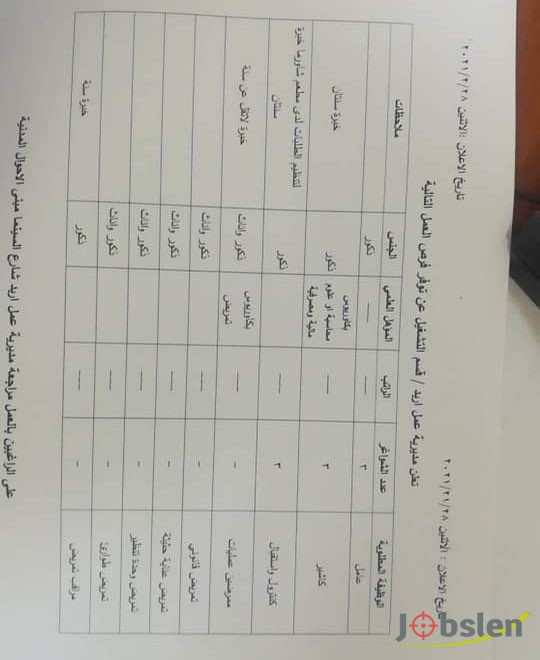 تاريخ الاعلان :الاثنين ٢٠٢١/٢/٢٨
تاريخ الاعلان : الاثنين ٢٠٢١/٢١/٢٨
تعلن مديرية عمل اربد / قسم التشغيل عن توفر فرص العمل التالية
الوظيفة المطلوبة عدد الشواغر الراتب المؤهل العلمي الجنس ملاحظات
عامل ٣ ---- ---- ذكور
كاشير ٣ ---- بكالوريوس محاسبة او علوم مالية ومصرفية ذكور خبرة سنتان
كنترول واستقبال ٣ ---- ذكور سنتان لتنظيم الطلبات لدى مطعم شاورما خبرة
ممرضين عمليات - ---- بكالوريوس تمريض ذكور واناث خبرة لاتقل عن سنة
تمريض قانوني - ---- ذكور واناث
تمريض عناية حثيثة - ---- ذكور واناث
تمريض وحدة تنظير - ---- ذكور واناث
تمريض طوارئ - ---- ذكور واناث
مراقب تمريض - ---- ذكور خبرة سنة
على الراغبين بالعمل مراجعة مديرية عمل اربد شارع السينما مبنى الاحوال المدنية
Jobslen